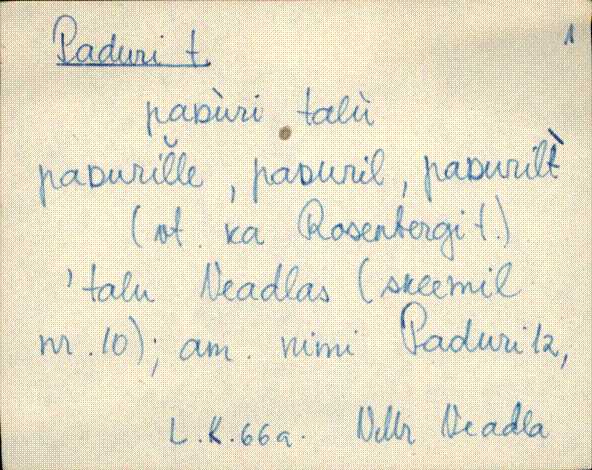 Paduri t. 1
paᴅùri talù
paᴅurĭlle, paᴅuril, paᴅurilt̀
(vt. ka Rosenbergi t.)
'talu Neadlas (skeemil
nr. 10); am. nimi Paduri 12,
L.K. 66a. Neadla